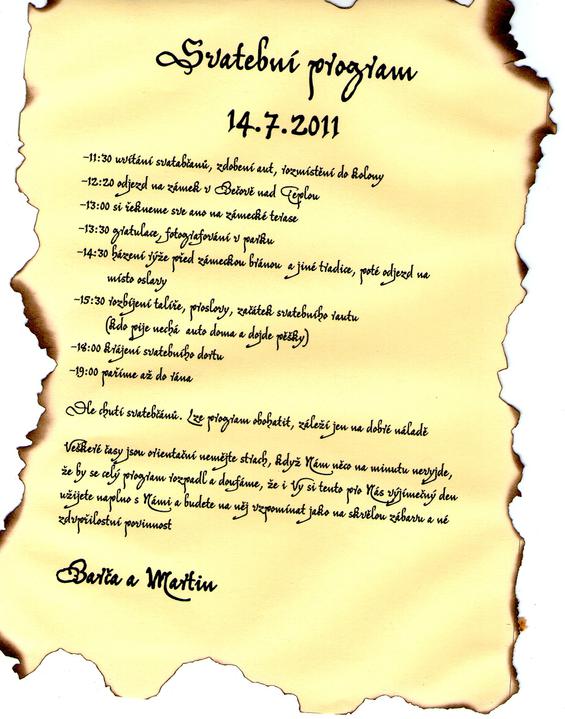 Svatební program
14.7.2011
-11:30 uvítání svatabčanů, zdobení aut, rozmístění do kolony
-12:20 odjezd na zámek v Bečově nad Teplou
-13:00 si řekneme sve ano na zámecké terase
-13:30 gratulace, fotografování v parku
-14:30 házení rýže před zámeckou bránou a jiné tradice, poté odjezd na
místo oslavy
-15:30 rozbíjení talíře, proslovy, začátek svatebního rautu
(kdo pije nechá auto doma a dojde pěšky)
-18:00 krájení svatebního dortu
-19:00 paříme až do rána
Dle chuti svatebčánů. Lze program obohatit, záleží jen na dobré náladě
Veškeré časy jsou orientační nemějte strach, když Nám něco na minutu nevyjde,
že by se celý program rozpadl a doufáme, že i Vy si tento pro Nás výjímečný den
užijete naplno s Námi a budete na něj vzpomínat jako na skvělou zábavu a né
zdvořilostní povinnost
Barča a Martin